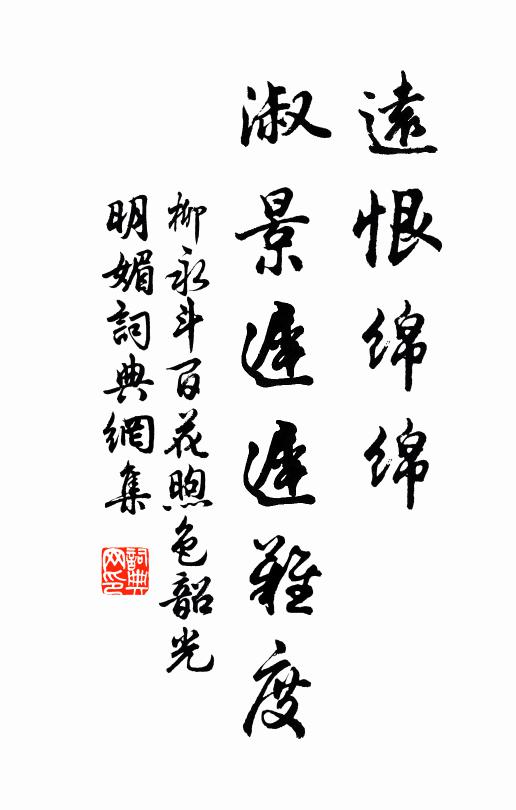 遠恨綿綿
淑景遲遲難度
柳永斗百花煦色韶光
明媚詞典網集
詞典網印